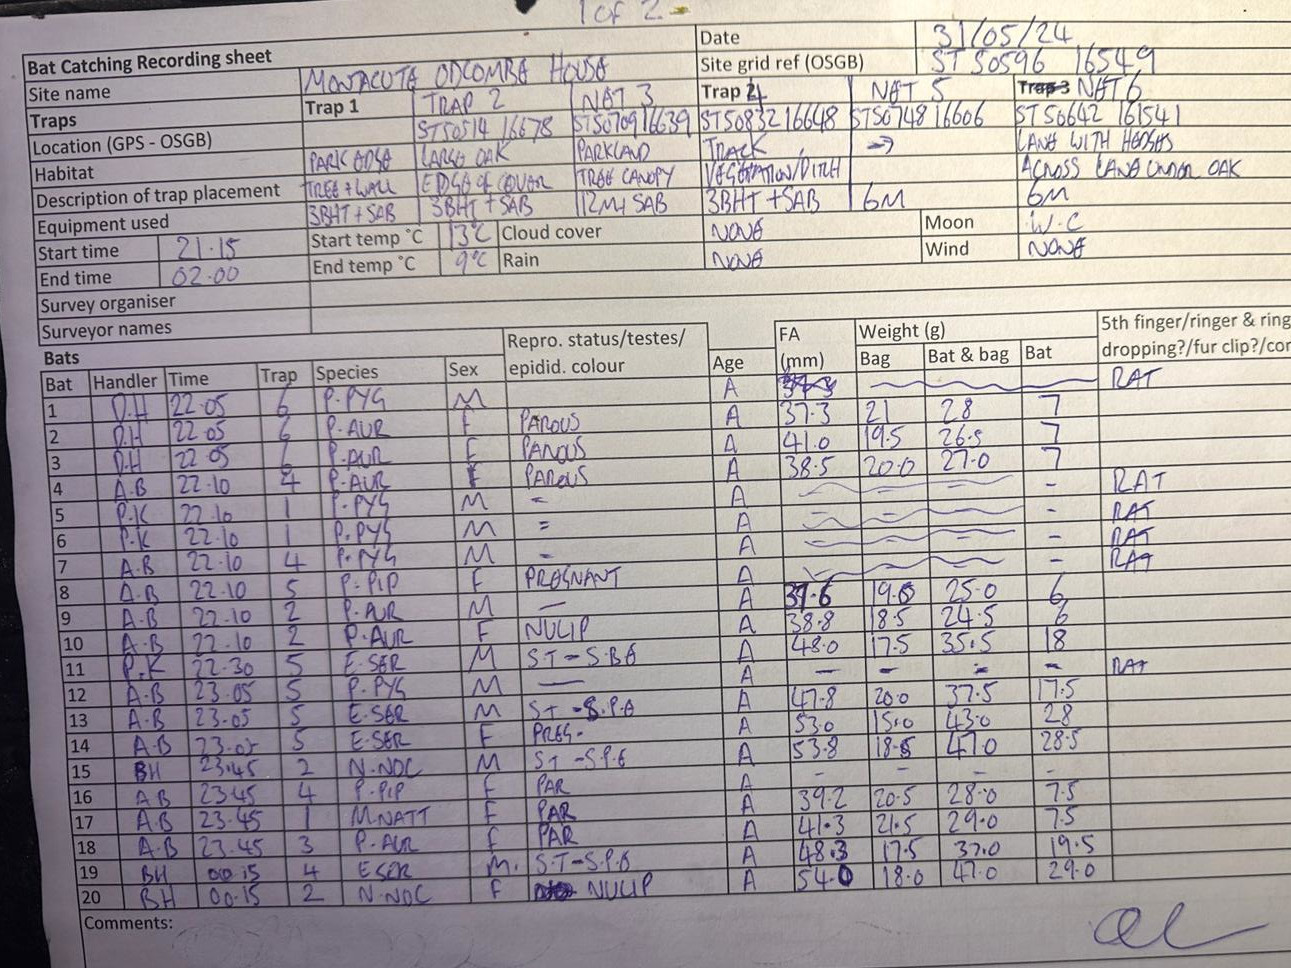 1 of 2
Bat Catching Recording sheet
Date 31/05/24
Site name MONTACUTE ODCOMBE HOUSE
Site grid ref (OSGB) ST 50596 16549
Traps Trap 1 TRAP 2 NET 3 Trap 4 NET 5 Trap 3 NET 6
Location (GPS - OSGB) ST50514 16678 ST50709 16639 ST50832 16648 ST50748 16606 ST50642 161541
Habitat PARK EDGE LARGE OAK PARKLAND TRACK → LANE WITH HEDGES
Description of trap placement TREE + WALL EDGE of COVER TREE CANOPY VEGETATION/DITCH ACROSS LANE UNDER OAK
Equipment used 3BHT + SAB 3BHT + SAB 12M+ SAB 3BHT + SAB 6M 6M
Start time 21.15 Start temp °C 13°C Cloud cover NONE Moon W.C
End time 02.00 End temp °C 9°C Rain NONE Wind NONE
Survey organiser
Surveyor names
Bats
Bat Handler Time Trap Species Sex Repro. status/testes/ epidid. colour Age FA (mm) Weight (g) Bag Bat & bag Bat 5th finger/ringer & ring dropping?/fur clip?/
1 D.H 22.05 6 P.PYG M A RAT
2 D.H 22.05 6 P.AUR F PAROUS A 37.3 21 28 7
3 D.H 22.05 6 P.AUR F PAROUS A 41.0 19.5 26.5 7
4 A.B 22.10 4 P.AUR F PAROUS A 38.5 20.0 27.0 7
5 P.K 22.10 1 P.PYG M - A - RAT
6 P.K 22.10 1 P.PYG M = A - RAT
7 A.B 22.10 4 P.PYG M - A - RAT
8 A.B 22.10 5 P.PIP F PREGNANT A - RAT
9 A.B 22.10 2 P.AUR M — A 37.6 19.0 25.0 6
10 A.B 22.10 2 P.AUR F NULIP A 38.8 18.5 24.5 6
11 P.K 22.30 5 E.SER M ST-S.B.E A 48.0 17.5 35.5 18
12 A.B 23.05 5 P.PYG M — A - - - - RAT
13 A.B 23.05 5 E.SER M ST-S.P.E A 47.8 20.0 37.5 17.5
14 A.B 23.05 5 E.SER F PREG- A 53.0 15.0 43.0 28
15 BH 23.45 2 N.NOC M ST-S.P.E A 53.8 18.5 47.0 28.5
16 AB 23.45 4 P.PIP F PAR A - - - -
17 A.B 23.45 1 M.NATT F PAR A 39.2 20.5 28.0 7.5
18 A.B 23.45 3 P.AUR F PAR A 41.3 21.5 29.0 7.5
19 BH 00.15 4 E.SER M. ST-S.P.E A 48.3 17.5 37.0 19.5
20 BH 00.15 2 N.NOC F NULIP A 54.0 18.0 47.0 29.0
Comments: